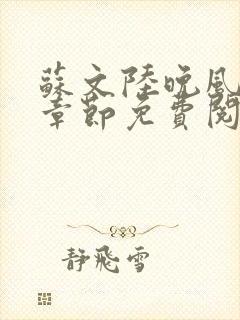 蘇文陸晚風
章節免費閱
靜飛雪